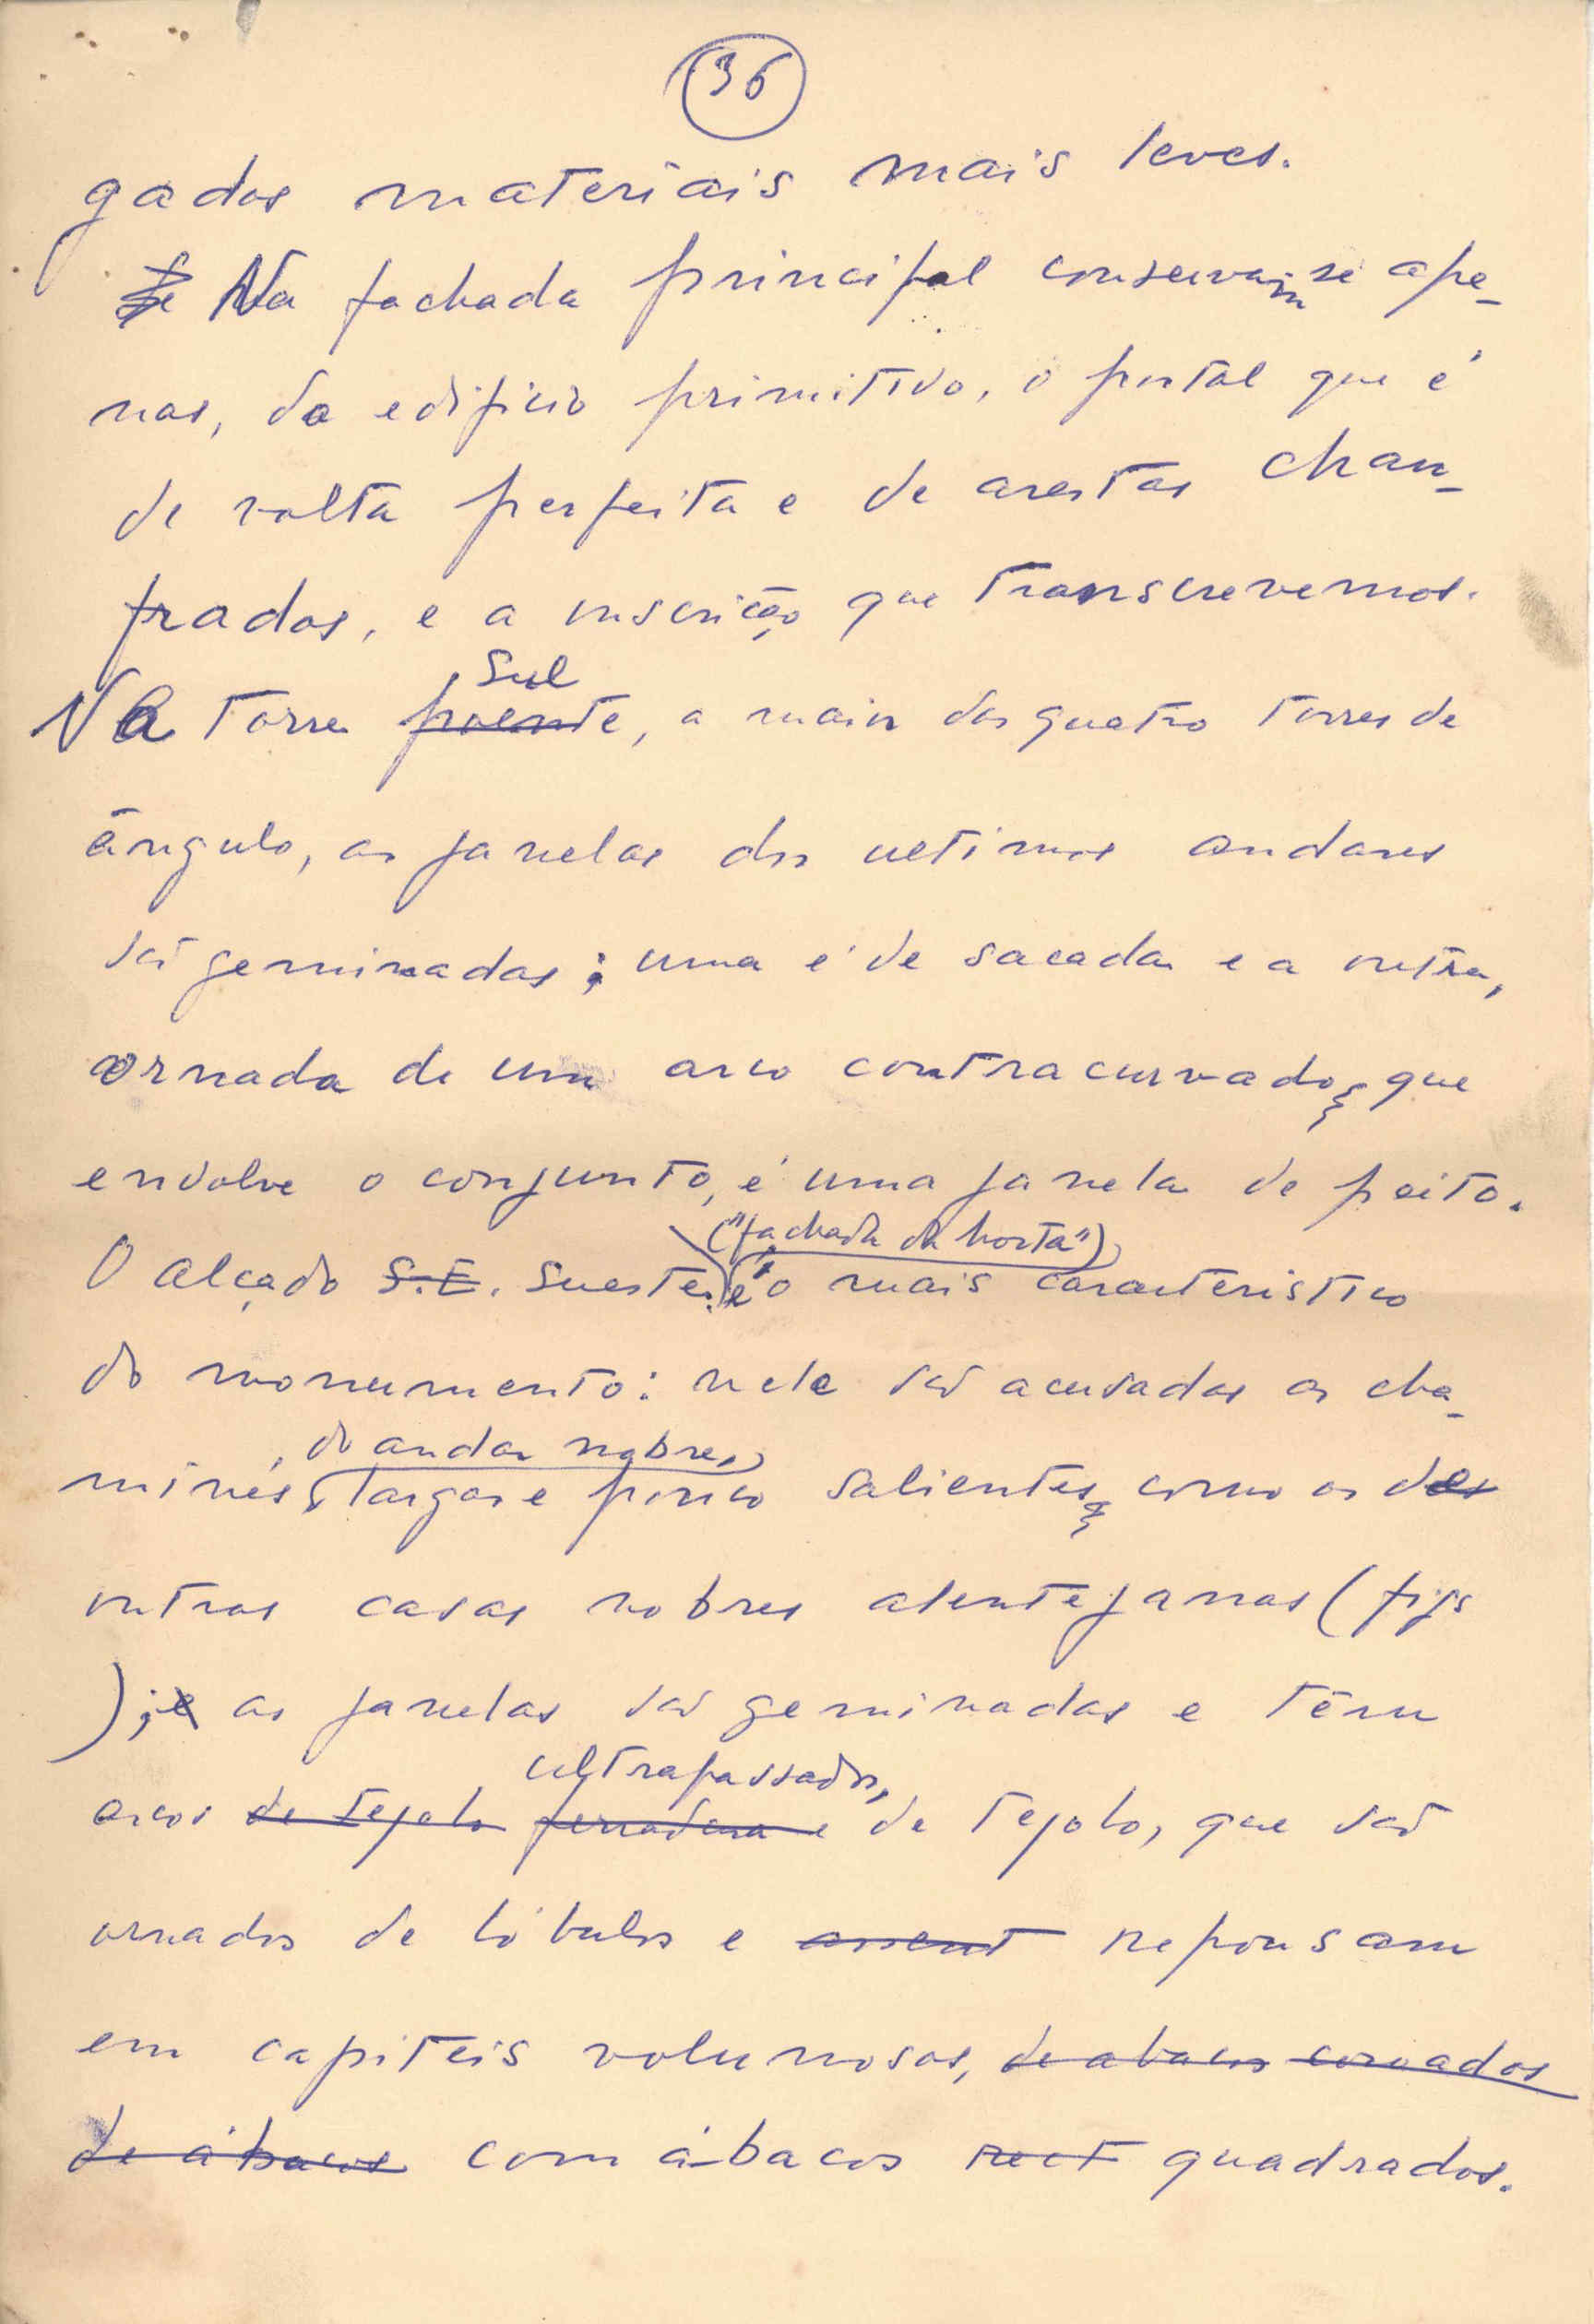 36
gados materiais mais leves.
Se Na fachada principal conservam-se ape-
nas, do edificio primitivo, o portal que é
de volta perfeita e de arestas chan-
fradas, e a inscrição que transcrevemos.
Sul
Na torre poente, a maior das quatro torres de
ângulo, as janelas dos ultimos andares
são geminadas; uma é de sacada e a outra,
ornada de um arco contracurvado, que
envolve o conjunto, é uma janela de peito.
("fachada da horta")
O alçado S.E. sueste é o mais caracteristico
do monumento: nele são acusadas as cha-
do andar nobre,
minés, largas e pouco salientes, como as das
outras casas nobres alentejanas (figs
); e as janelas são geminadas e têm
ultrapassados,
arcos de tejolo ferradura e de tejolo, que são
ornados de lóbulos e assent repousam
em capiteis volumosos, de abacos coroados
de ábacos com ábacos rect quadrados.